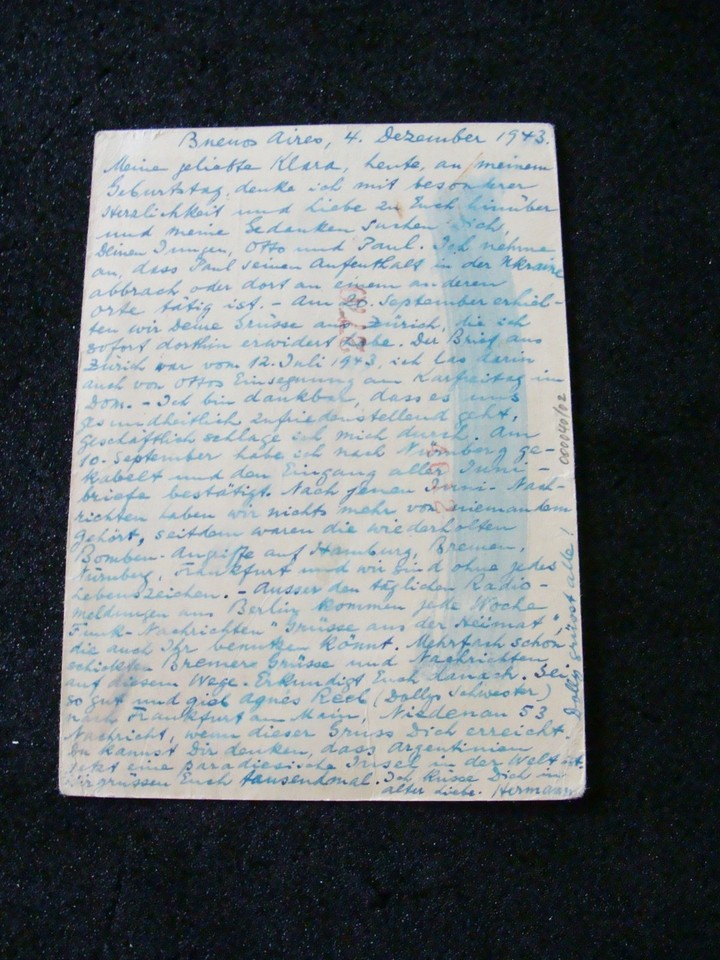 Buenos Aires, 4. Dezember 1943.
Meine geliebte Klara, heute, an meinem
Geburtstag, denke ich mit besonderer
Herzlichkeit und Liebe zu Euch hinüber
und meine Gedanken suchen Dich,
Deinen Jungen, Otto und Paul. Ich nehme
an, dass Paul seinen Aufenthalt in der Ukraine
abbrach oder dort an einem anderen
Orte tätig ist. - Am September erhiel-
ten wir Deine Grüsse aus Zürich, die ich
sofort dorthin erwidert habe. Der Brief aus
Zürich war vom 12. Juli 1943, ich las darin
auch von Ottos Einsegnung am Karfreitag im
Dom. - Ich bin dankbar, dass es uns
gesundheitlich zufriedenstellend geht,
geschäftlich schlage ich mich durch. Am
10. September habe ich nach Nürnberg ge-
kabelt und den Eingang aller Juni-
briefe bestätigt. Nach jenen Juni-Nach-
richten haben wir nichts mehr von niemandem
gehört, seitdem waren die wiederholten
Bomben-Angriffe auf Hamburg, Bremen,
Nürnberg, Frankfurt und wir sind ohne jedes
Lebenszeichen. - Ausser den täglichen Radio-
meldungen aus Berlin kommen jede Woche
Funk-Nachrichten "Grüsse aus der Heimat",
die auch Ihr benutzen könnt. Mehrfach schon
schickten Bremer Grüsse und Nachrichten
auf diesem Wege. Erkundigt Euch danach. Sei
so gut und gieb Agnes Rech (Dollys Schwester)
nach Frankfurt am Main, Niedenau 53
Nachricht, wenn dieser Gruss Dich erreicht.
Du kannst Dir denken, dass Argentinien
jetzt eine paradiesische Insel in der Welt ist.
Wir grüssen Euch tausendmal. Ich küsse Dich in
alter Liebe. Hermann
Dolly grüsst alle!
000040/02